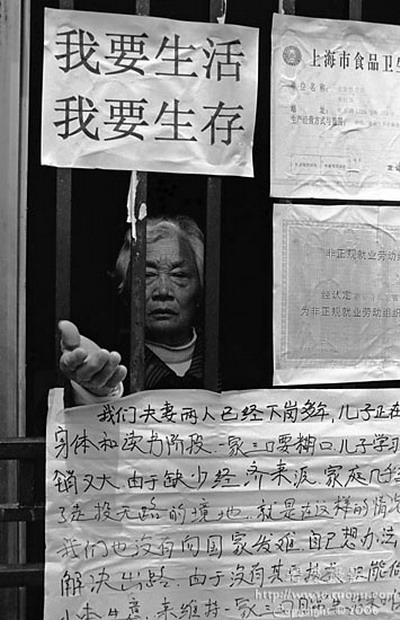 我要生活
我要生存
上海市食品卫生
单位名称：
地址：
生产经营方式与范围：
非正规就业劳动组
经认定
为非正规就业劳动组织
我们夫妻两人已经下岗多年，儿子正在
身体和读书阶段，一家三口要糊口，儿子学习
销又大，由于缺少经济来源，家庭几乎
了走投无路的境地，就是在这样的情况
我们也没有向国家发难，自己想办法
解决出路，由于没有其
小本生意，来维持一家三口
©2006